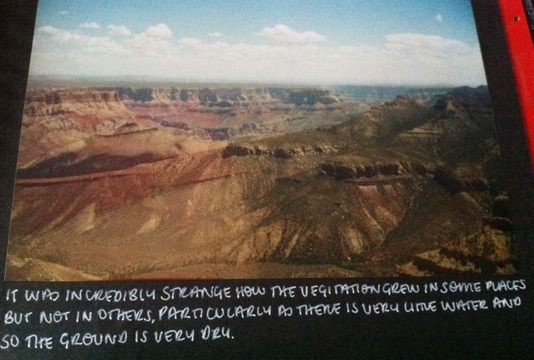 IT WAS INCREDIBLY STRANGE HOW THE VEGITATION GREW IN SOME PLACES
BUT NOT IN OTHERS, PARTICULARLY AS THERE IS VERY LITTLE WATER AND
SO THE GROUND IS VERY DRY.